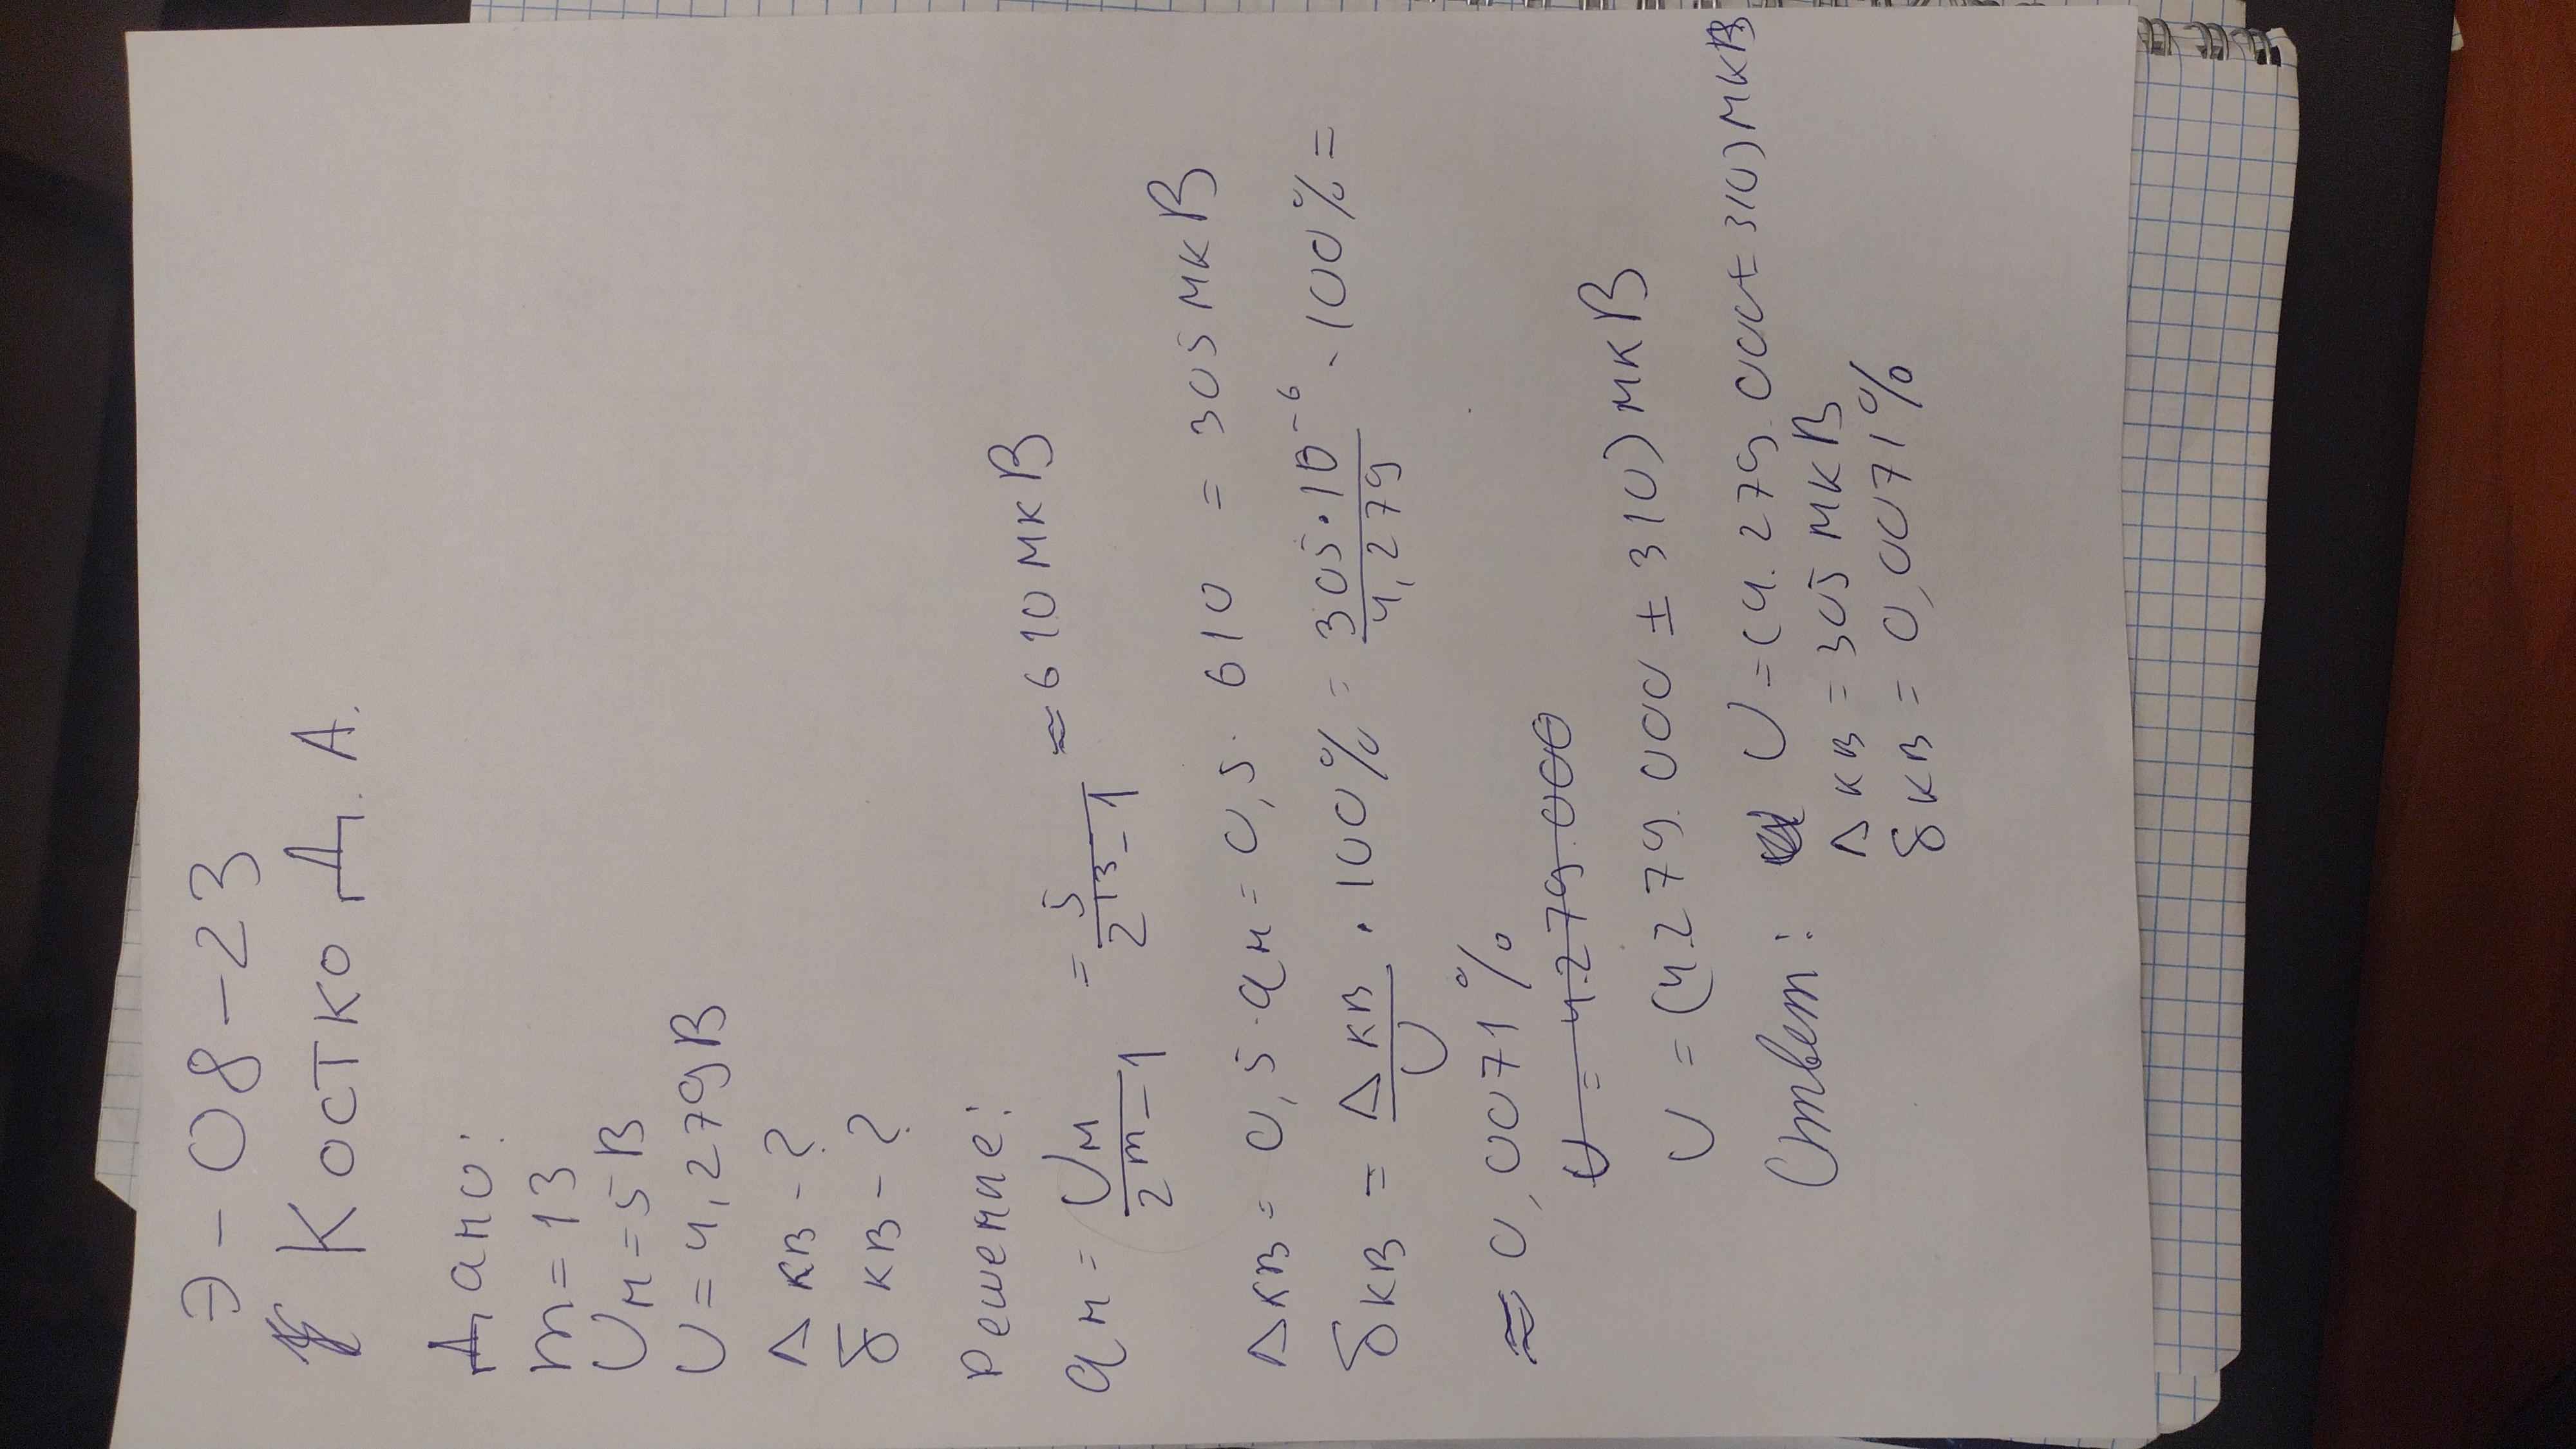 Э-08-23
Костко Д.А.
Дано:
m=13
Uм=5В
U=4,279В
Δкв-?
δкв-?
Решение:
qм= Uм/2^m-1 = 5/2^13-1 ≈610мкВ
Δкв=0,5·qм=0,5·610=305мкВ
δкв=Δкв/U·100%=305·10^-6/4,279·100%=
≈0,0071%
U=4.279.000
U=(4.279.000±310)мкВ
Ответ: U=(4.279.000±310)мкВ
Δкв=305мкВ
δкв=0,0071%